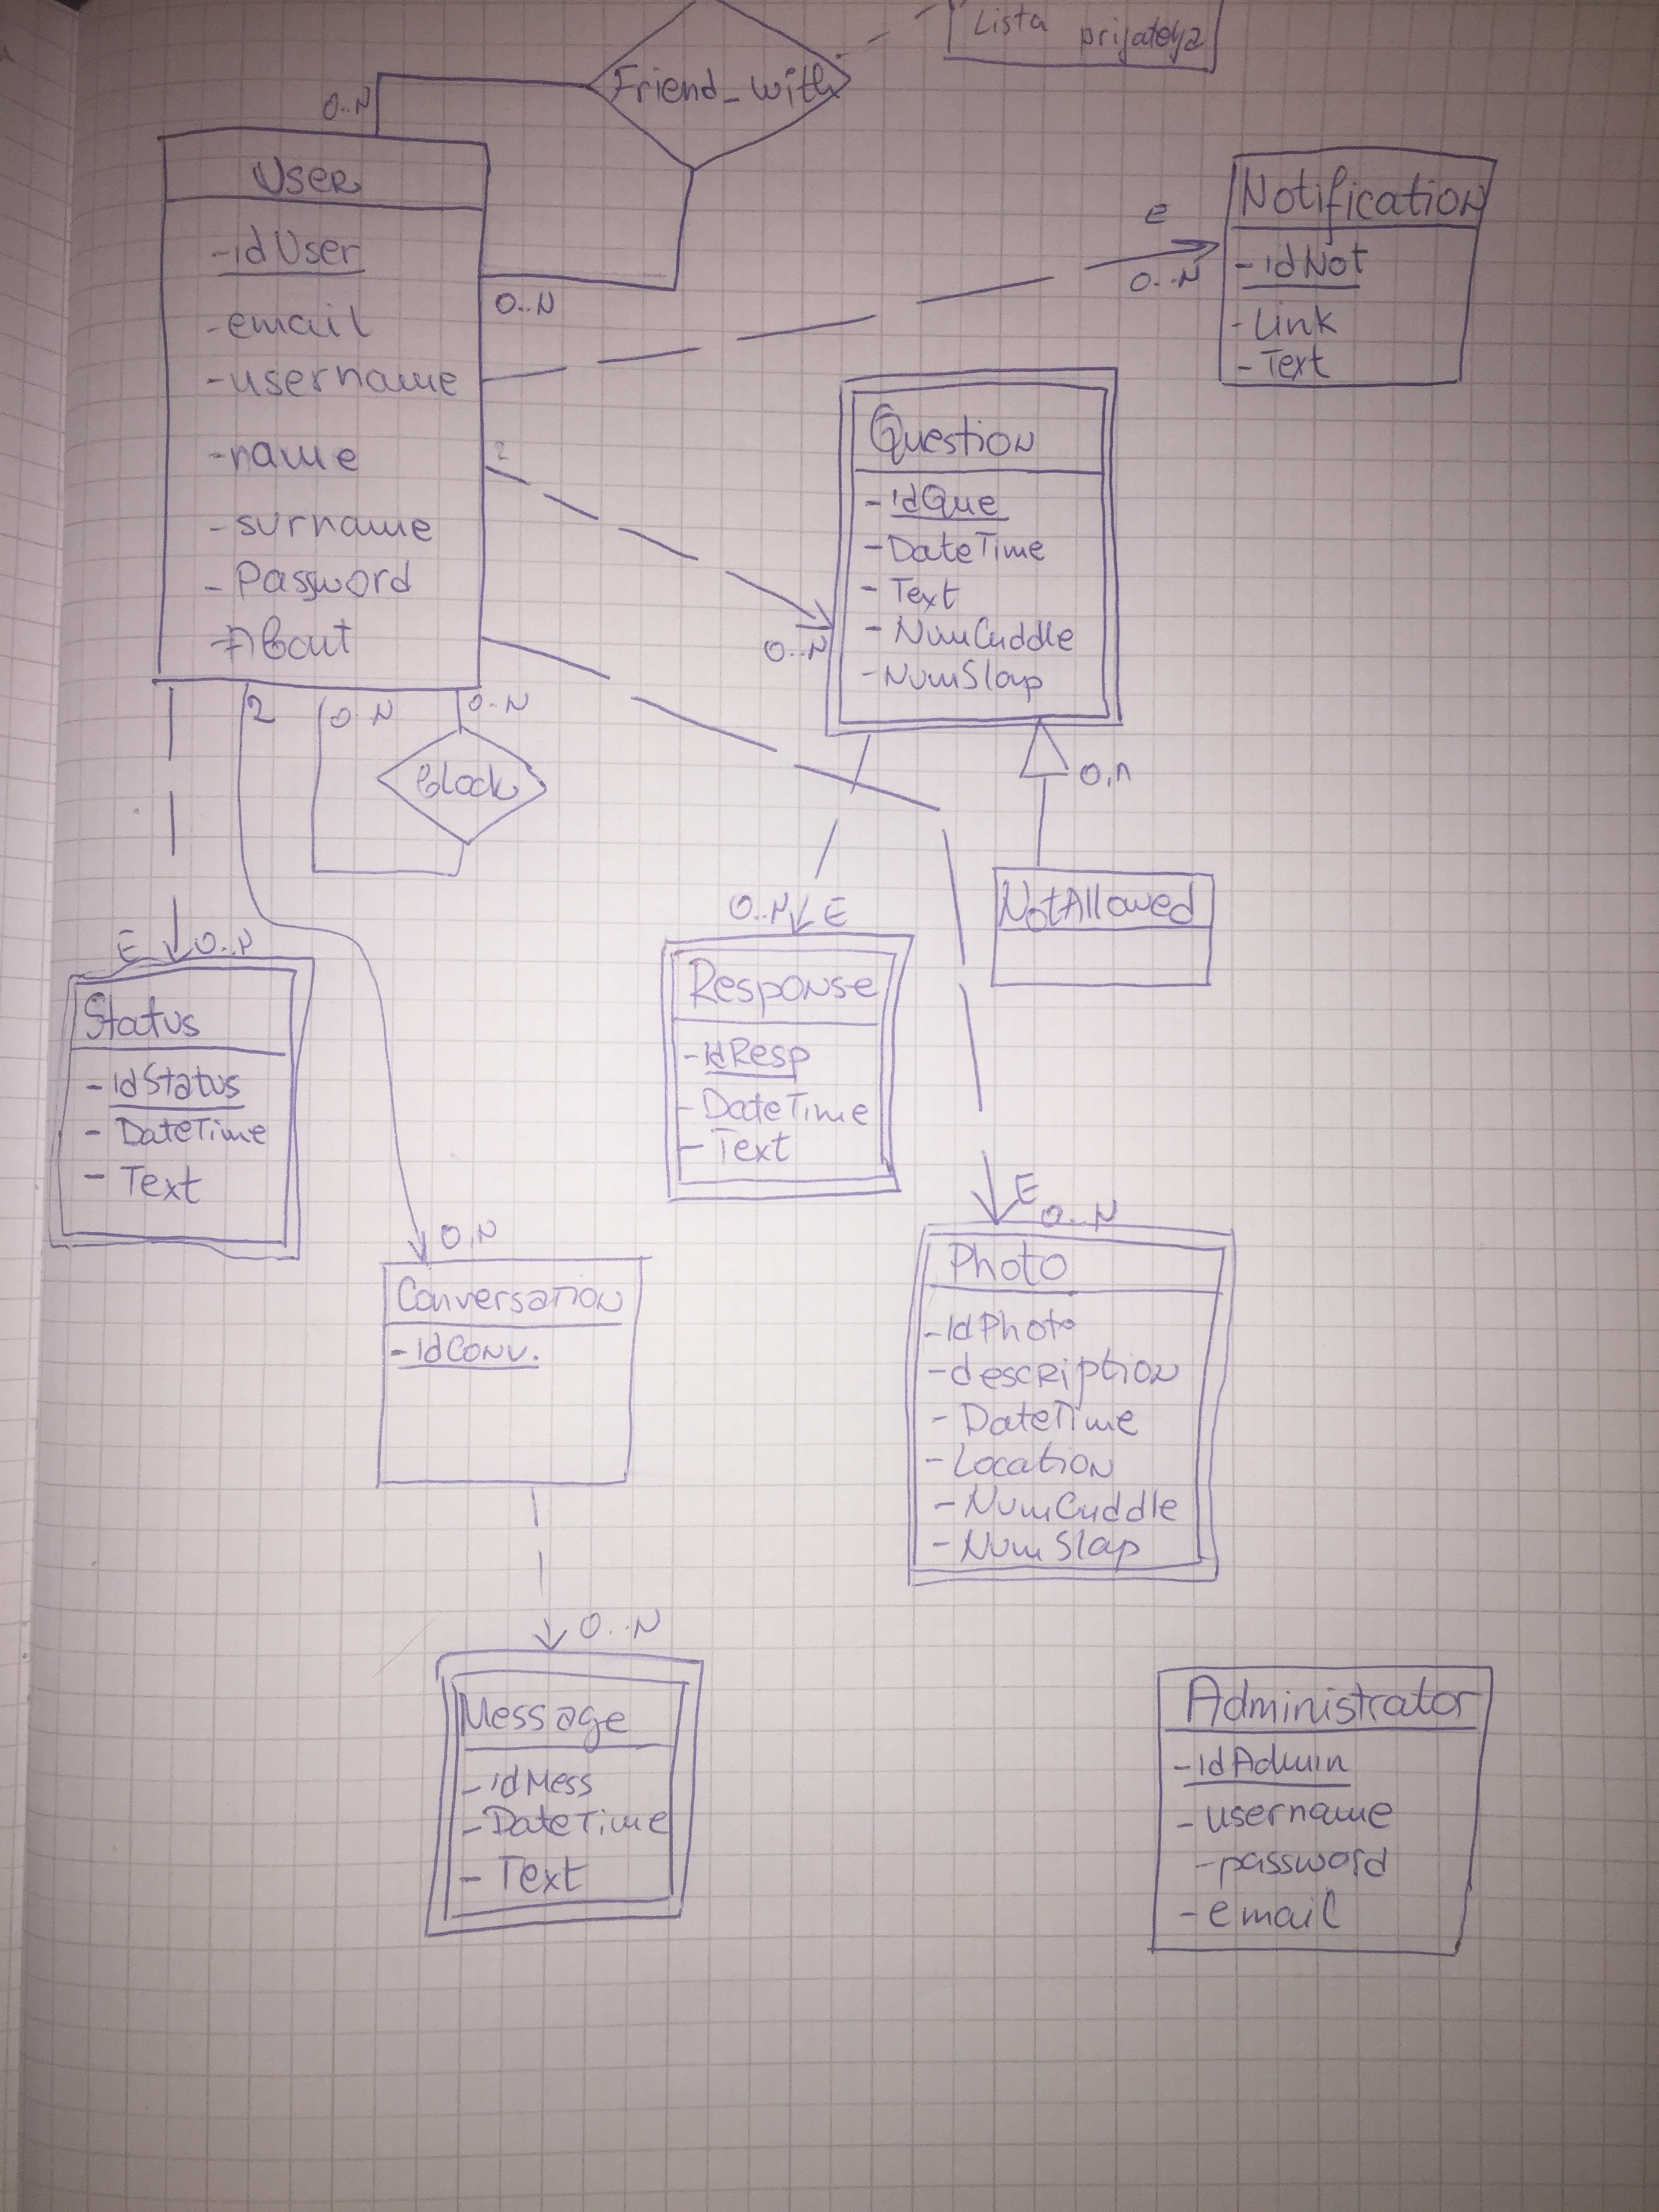 Lista prijatelja
Friend_with
0..N
User
-idUser
-email
-username
-name
-surname
-Password
-About
0..N
e
0..N
Notification
-idNot
-Link
-Text
Question
-idQue
-DateTime
-Text
-NumCuddle
-NumSlap
0..N
2
0 N
0..N
block
0,n
NotAllowed
E
0..N
Status
-idStatus
-DateTime
-Text
0..N
E
Response
-IdResp
-DateTime
-Text
0,N
Conversation
-IdConv.
E
0..N
Photo
-IdPhoto
-description
-DateTime
-Location
-NumCuddle
-NumSlap
0..N
Message
-idMess
-DateTime
-Text
Administrator
-idAdmin
-username
-password
-email